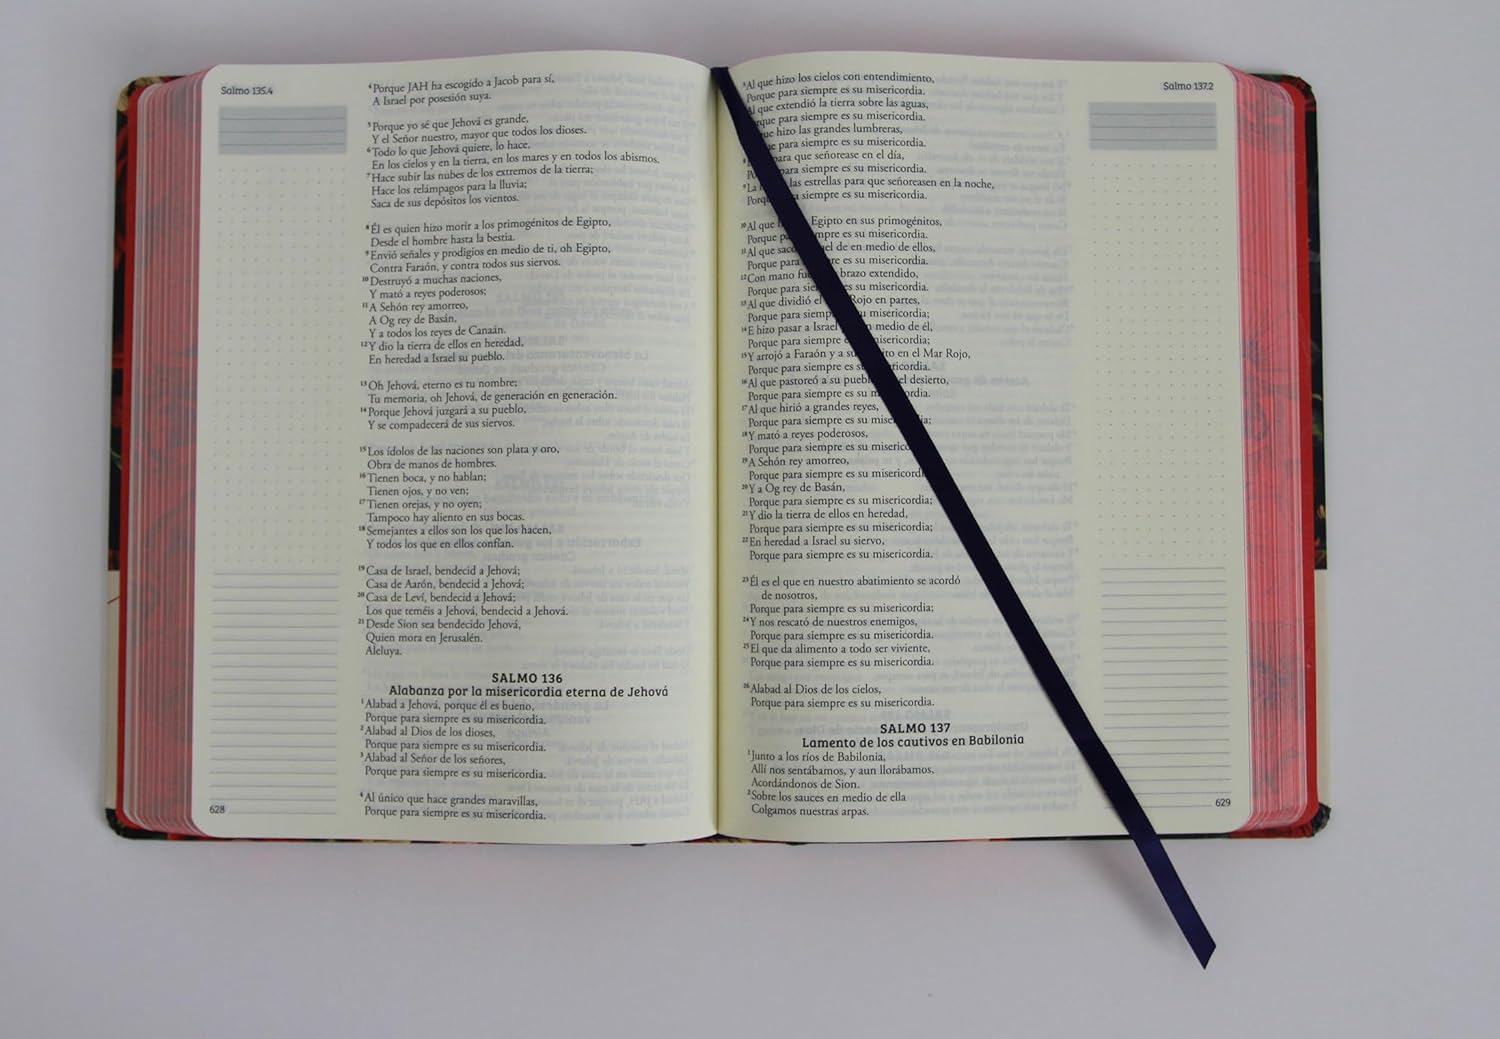 Salmo 135.4
⁴Porque JAH ha escogido a Jacob para sí,
A Israel por posesión suya.
⁵Porque yo sé que Jehová es grande,
Y el Señor nuestro, mayor que todos los dioses.
⁶Todo lo que Jehová quiere, lo hace,
En los cielos y en la tierra, en los mares y en todos los abismos.
⁷Hace subir las nubes de los extremos de la tierra;
Hace los relámpagos para la lluvia;
Saca de sus depósitos los vientos.
⁸Él es quien hizo morir a los primogénitos de Egipto,
Desde el hombre hasta la bestia.
⁹Envió señales y prodigios en medio de ti, oh Egipto,
Contra Faraón, y contra todos sus siervos.
¹⁰Destruyó a muchas naciones,
Y mató a reyes poderosos;
¹¹A Sehón rey amorreo,
A Og rey de Basán,
Y a todos los reyes de Canaán.
¹²Y dio la tierra de ellos en heredad,
En heredad a Israel su pueblo.
¹³Oh Jehová, eterno es tu nombre;
Tu memoria, oh Jehová, de generación en generación.
¹⁴Porque Jehová juzgará a su pueblo,
Y se compadecerá de sus siervos.
¹⁵Los ídolos de las naciones son plata y oro,
Obra de manos de hombres.
¹⁶Tienen boca, y no hablan;
Tienen ojos, y no ven;
¹⁷Tienen orejas, y no oyen;
Tampoco hay aliento en sus bocas.
¹⁸Semejantes a ellos son los que los hacen,
Y todos los que en ellos confían.
¹⁹Casa de Israel, bendecid a Jehová;
Casa de Aarón, bendecid a Jehová;
²⁰Casa de Leví, bendecid a Jehová;
Los que teméis a Jehová, bendecid a Jehová.
²¹Desde Sion sea bendecido Jehová,
Quien mora en Jerusalén.
Aleluya.
SALMO 136
Alabanza por la misericordia eterna de Jehová
¹Alabad a Jehová, porque él es bueno,
Porque para siempre es su misericordia.
²Alabad al Dios de los dioses,
Porque para siempre es su misericordia.
³Alabad al Señor de los señores,
Porque para siempre es su misericordia.
⁴Al único que hace grandes maravillas,
Porque para siempre es su misericordia.
628
Salmo 137.2
⁵Al que hizo los cielos con entendimiento,
Porque para siempre es su misericordia.
Al que extendió la tierra sobre las aguas,
para siempre es su misericordia.
hizo las grandes lumbreras,
para siempre es su misericordia.
⁸ para que señorease en el día,
para siempre es su misericordia.
⁹La las estrellas para que señoreasen en la noche,
siempre es su misericordia.
¹⁰Al que Egipto en sus primogénitos,
Porque siempre es su misericordia.
¹¹Al que sacó de en medio de ellos,
Porque para es su misericordia.
¹²Con mano brazo extendido,
Porque para es su misericordia.
¹³Al que dividió el Rojo en partes,
Porque para siempre su misericordia;
¹⁴E hizo pasar a Israel medio de él,
Porque para siempre misericordia;
¹⁵Y arrojó a Faraón y a su en el Mar Rojo,
Porque para siempre es su
¹⁶Al que pastoreó a su el desierto,
Porque para siempre es su
¹⁷Al que hirió a grandes reyes,
Porque para siempre es su
¹⁸Y mató a reyes poderosos,
Porque para siempre es su
¹⁹A Sehón rey amorreo,
Porque para siempre es su
²⁰Y a Og rey de Basán,
Porque para siempre es su misericordia;
²¹Y dio la tierra de ellos en heredad,
Porque para siempre es su misericordia;
²²En heredad a Israel su siervo,
Porque para siempre es su misericordia.
²³Él es el que en nuestro abatimiento se acordó
de nosotros,
Porque para siempre es su misericordia;
²⁴Y nos rescató de nuestros enemigos,
Porque para siempre es su misericordia.
²⁵El que da alimento a todo ser viviente,
Porque para siempre es su misericordia.
²⁶Alabad al Dios de los cielos,
Porque para siempre es su misericordia.
SALMO 137
Lamento de los cautivos en Babilonia
¹Junto a los ríos de Babilonia,
Allí nos sentábamos, y aun llorábamos.
Acordándonos de Sion.
²Sobre los sauces en medio de ella
Colgamos nuestras arpas.
629